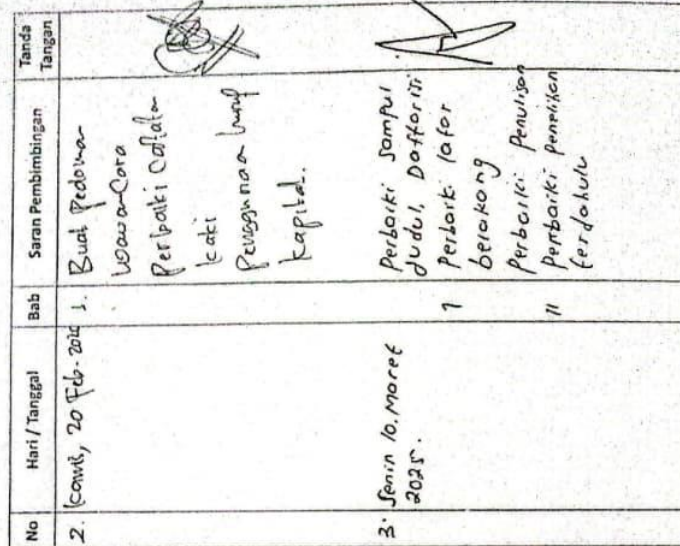 No Hari / Tanggal Bab Saran Pembimbingan Tanda Tangan
2. Kamis, 20 Feb-2025 1. Buat Pedoman
wawa-Cara
Perbaiki Catatan
kaki
Penggunaan huruf
kapital.
3. Senin 10. Maret
2025.
Perbaiki Sampul
Judul, Daftar isi
1 Perbaiki latar
belakang
Perbaiki Penulisan
II Perbaiki Penelitian
terdahulu